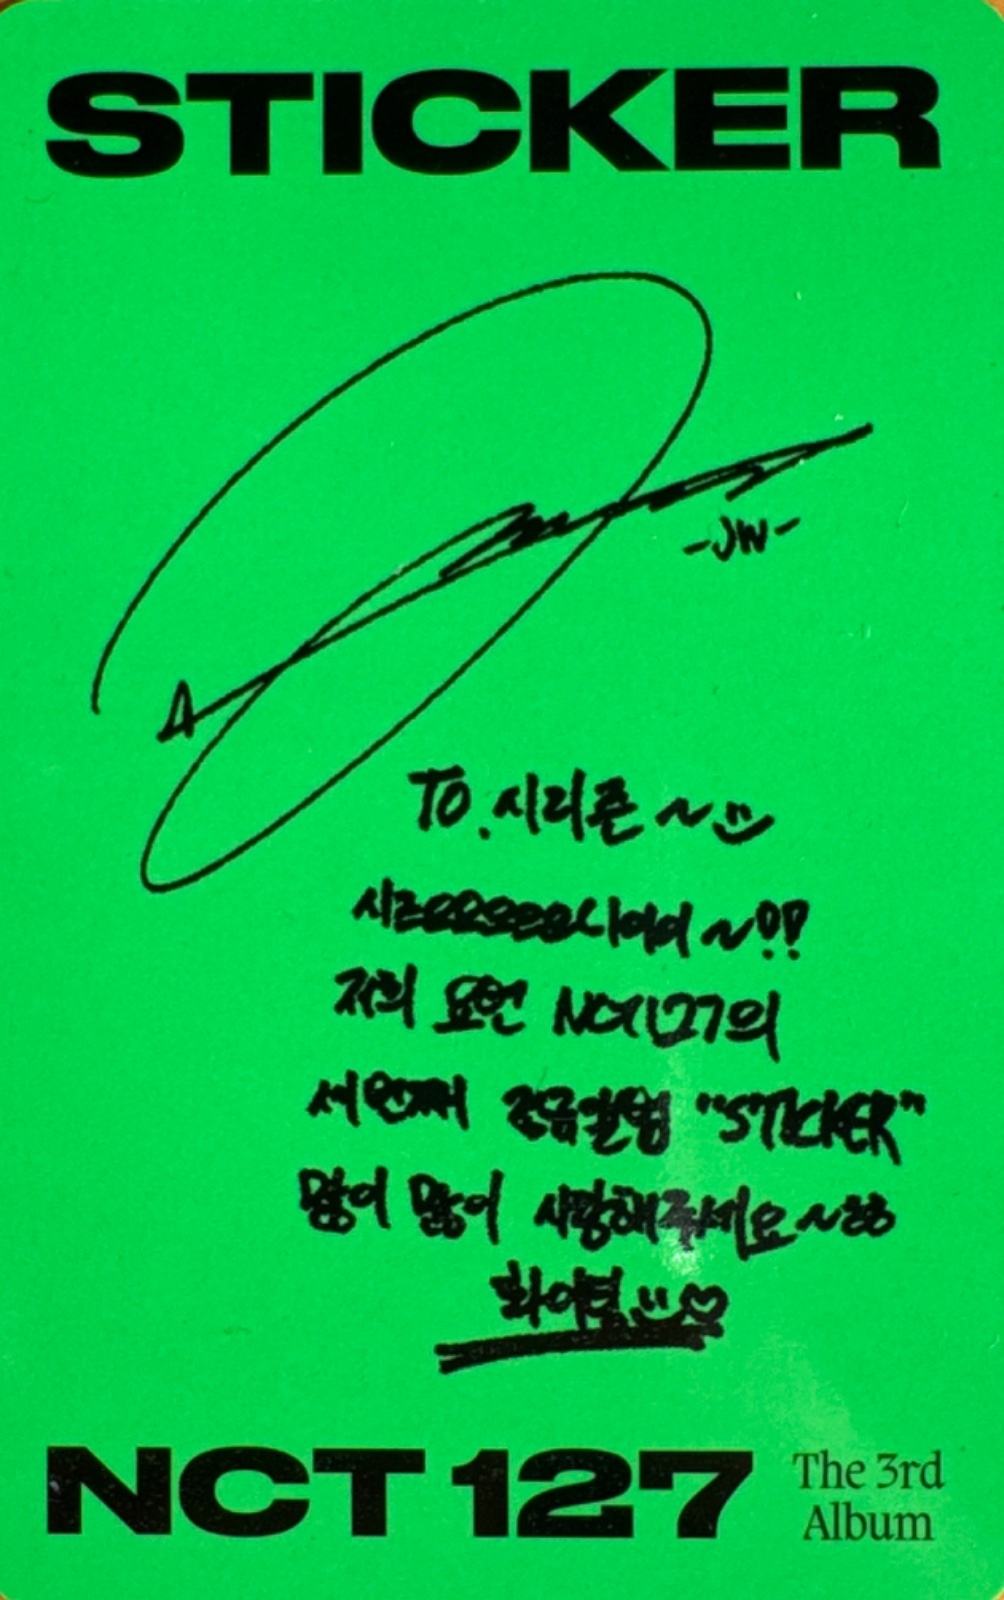 STICKER
-JW-
TO. 시리준~
시즈으으으으으니여어~!!
저희 요번 NCT127의
세번째 정규앨범 "STICKER"
많이 많이 사랑해주세요~ㅎㅎ
화이팅
NCT 127
The 3rd
Album